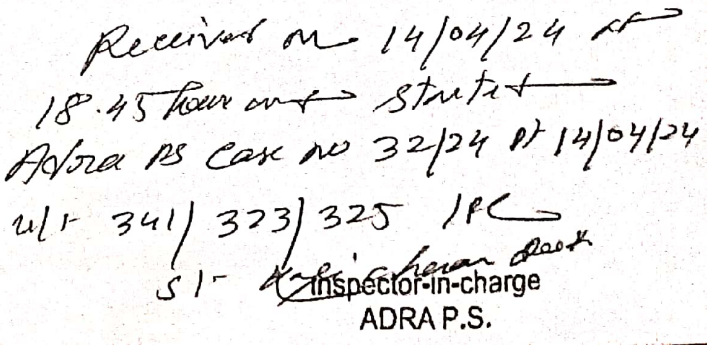 Received on 14/04/24 at
18.45 hour and started
Adra PS Case no 32/24 Dt 14/04/24
u/s- 341/323/325 IPC
S/-
Inspector-in-charge
ADRA P.S.